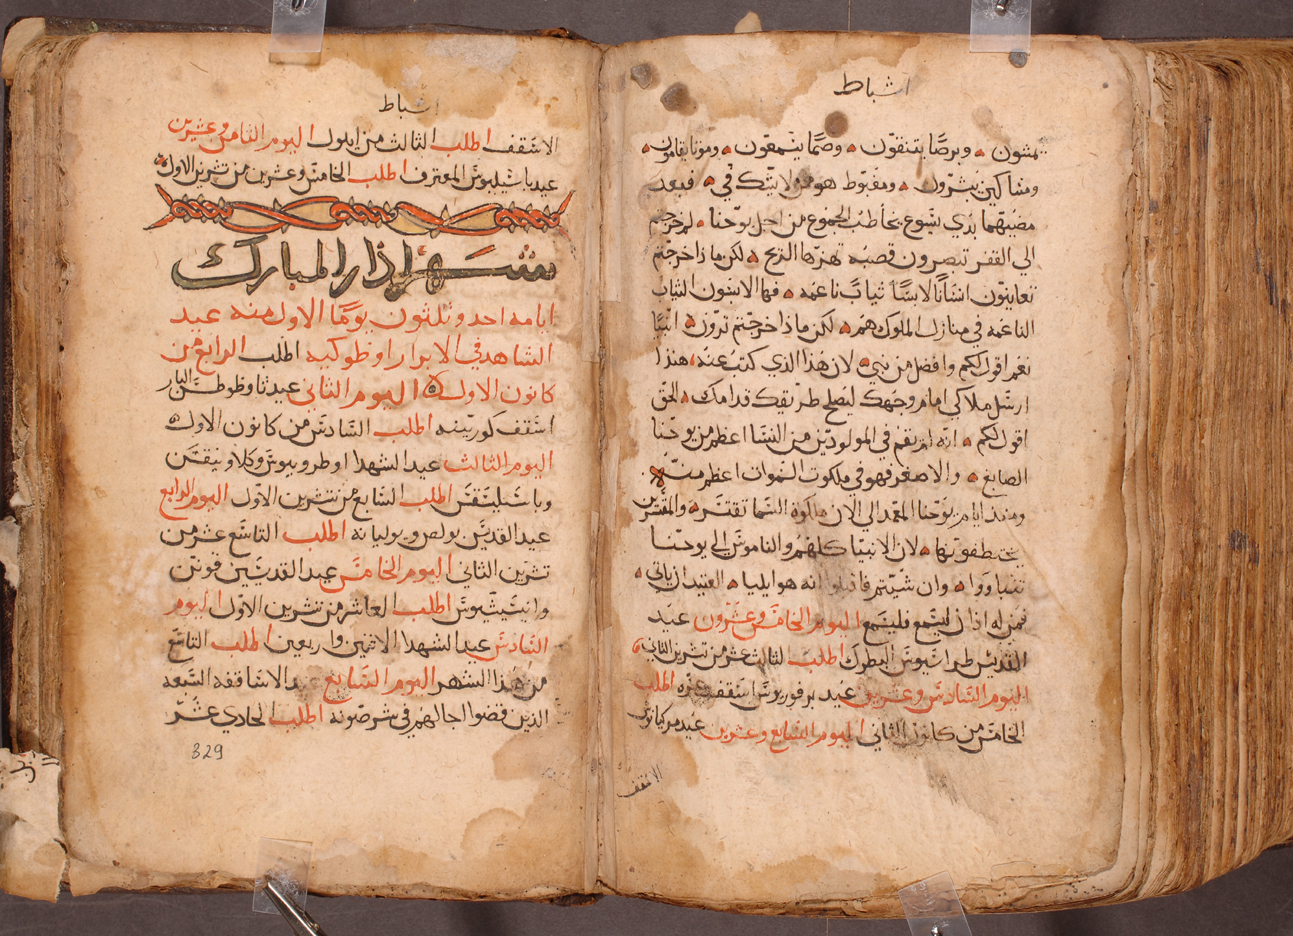 اشباط
يمشون ۞ وبرصًا يتنقّون ۞ وصمًّا يسمعون ۞ وموتا يقامون ۞
ومساكين يبشرون ۞ ومغبوط هو من لا يشك فيّ ۞ فبعد
مضيهما بدي يسوع يخاطب الجموع من اجل يوحنا ۞ لم خرجتم
الي القفر تبصرون قصبه تهزها الريح ۞ لكن ماذا خرجتم
تعاينون انسانًا لابسًا ثيابًا ناعمه ۞ فها لابسون الثياب
الناعمه في منازل الملوك هم ۞ لكن ماذا خرجتم ترون ۞ انبيًا
نعم اقول لكم وافضل من نبي ۞ لان هذا الذي كتب عنه ۞ هنذا
ارسل ملاكي امام وجهك ليصلح طريقك قدامك ۞ الحق
اقول لكم ۞ انه لم يقم في المولودين من النسا اعظم من يوحنا
الصابغ ۞ والاصغر فهو في ملكوت السموات اعظم منه ۞
ومنذ ايام يوحنا المعمد الي الان ملكوة السما تقتسر ۞ والمقتسرين
يختطفونها ۞ لان الانبيا كلهم والناموس الي يوحنا
تنباووا ۞ وان شيتم فاقبلوا انه هو ايليا ۞ العتيد ان ياتي ۞
فمن له اذان ليسمع فليسمع اليوم الخامس وعشرون عيد
القديس طراسيوس البطرك اطلب الثالث عشر من تشرين الثاني ۞
اليوم السادس وعشرين عيد برفوريوس اسقف غزه اطلب
الخامس من كانون الثاني اليوم السابع وعشرين عيد مركيانوس
الاسقف
اشباط
الاسقف اطلب الثالث من ايلول اليوم الثامن وعشرين
عيد باسيليوس المعترف اطلب الخامس وعشرين من تشرين الاول ۞
شهر اذار المبارك
ايامه احد وثلثون يومًا الاول منه عيد
الشاهد في الابرار اوظوكيه اطلب الرابع من
كانون الاول ۞ اليوم الثاني عيد ثاوظوطس البار
اسقف كورينيه اطلب السادس من كانون الاول ۞
اليوم الثالث عيد الشهدا اوطروبيوس وكلاونيقس
وباسيليسقس اطلب السابع من تشرين الاول اليوم الرابع
عيد القديس بولص ويوليانه اطلب التاسع عشر من
تشرين الثاني اليوم الخامس عيد القديسين قونن
وانيسيوس اطلب العاشر من تشرين الاول اليوم
السادس عيد الشهدا الاثنين واربعين اطلب التاسع
من هذا الشهر اليوم السابع عيد الاساقفه السبعه
الذين قضوا اجالهم في شرصونه اطلب الحادي عشر
329